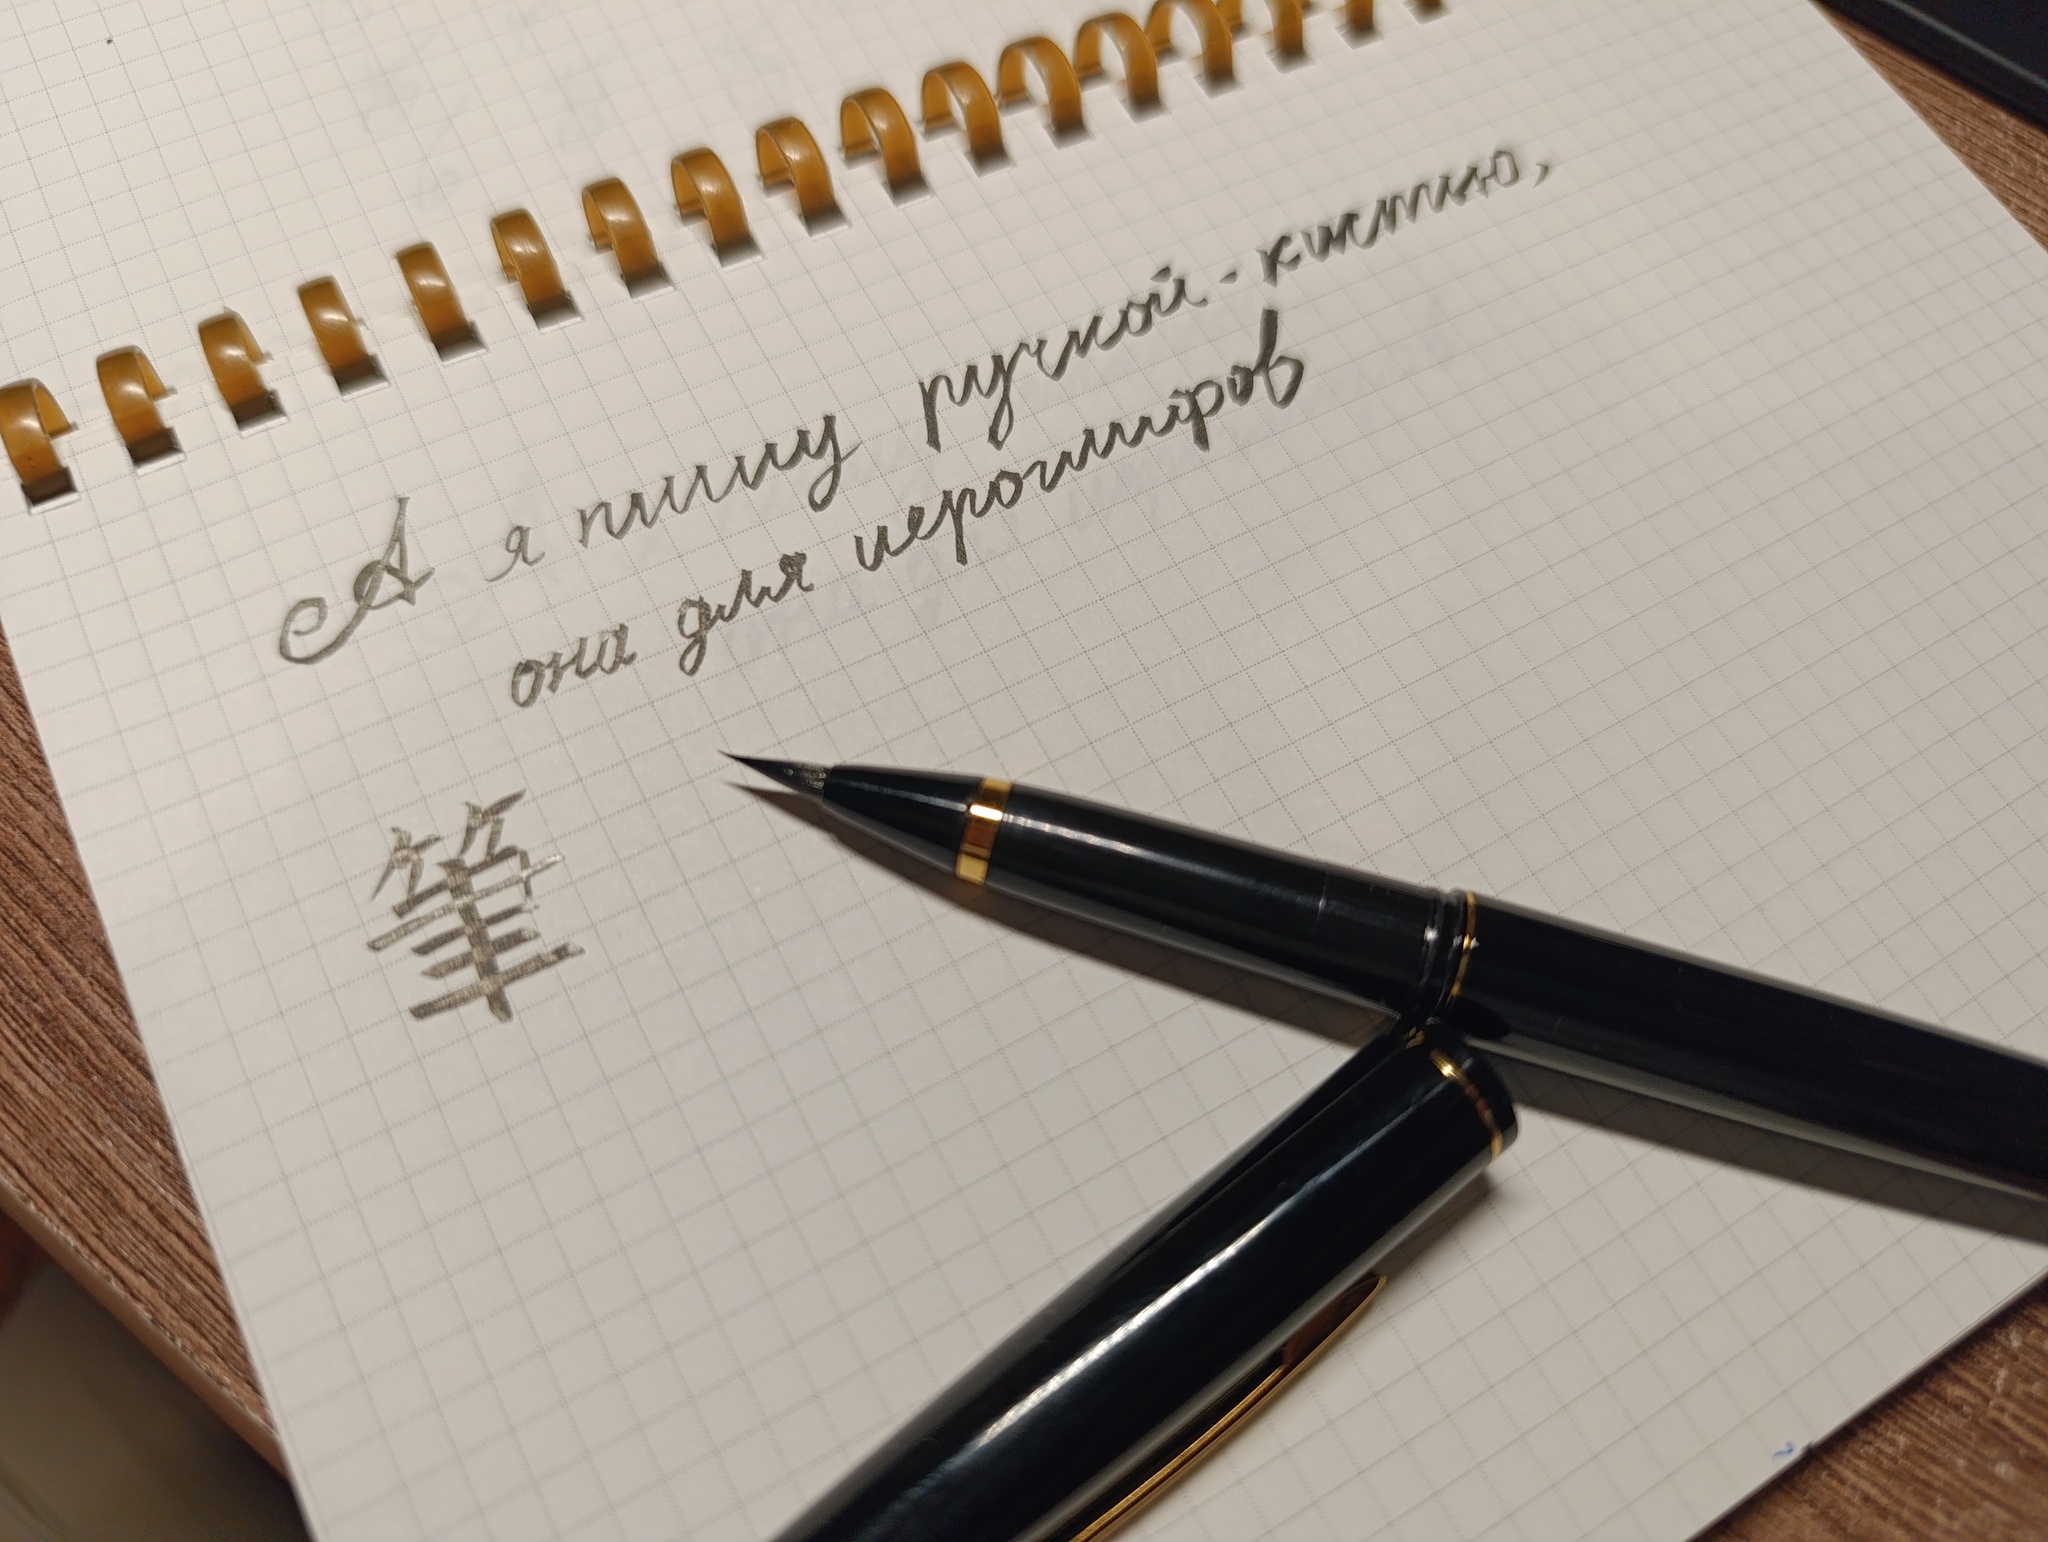 А я пишу ручкой-кистью,
она для иероглифов
筆